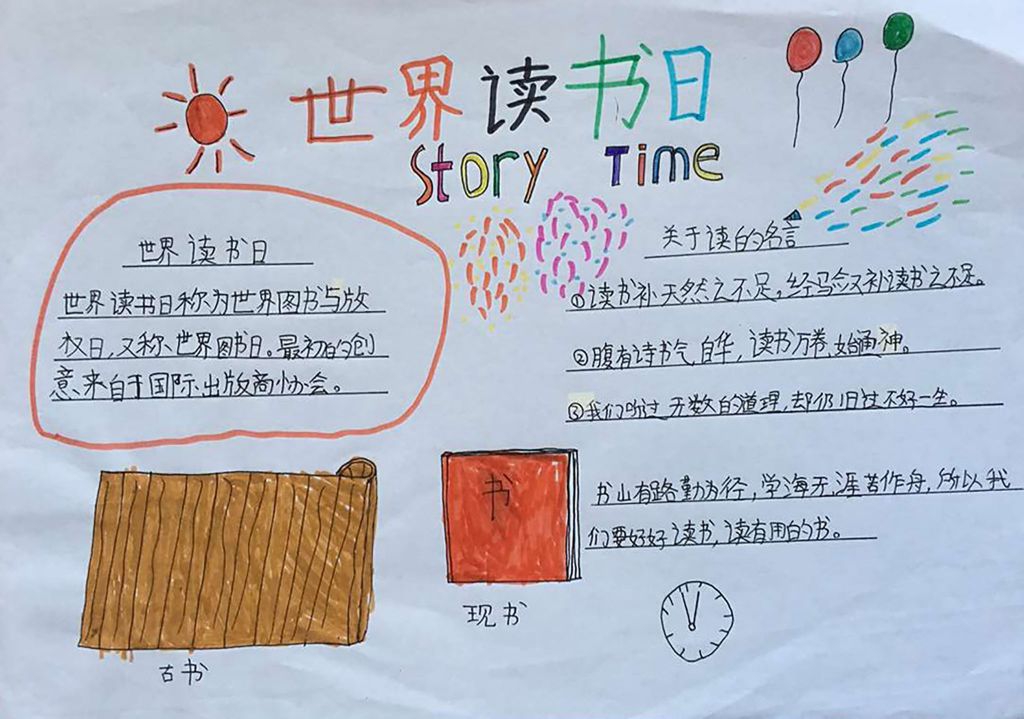 世界读书日
Story Time
世界读书日
世界读书日称为世界图书与版
权日,又称世界图书日。最初的创
意来自于国际出版商协会。
关于读的名言
①读书补天然之不足,经验又补读书之不足。
②腹有诗书气自华,读书万卷始通神。
③我们听过无数的道理,却仍旧过不好一生。
书山有路勤为径,学海无涯苦作舟,所以我
们要好好读书,读有用的书。
书
古书
现书